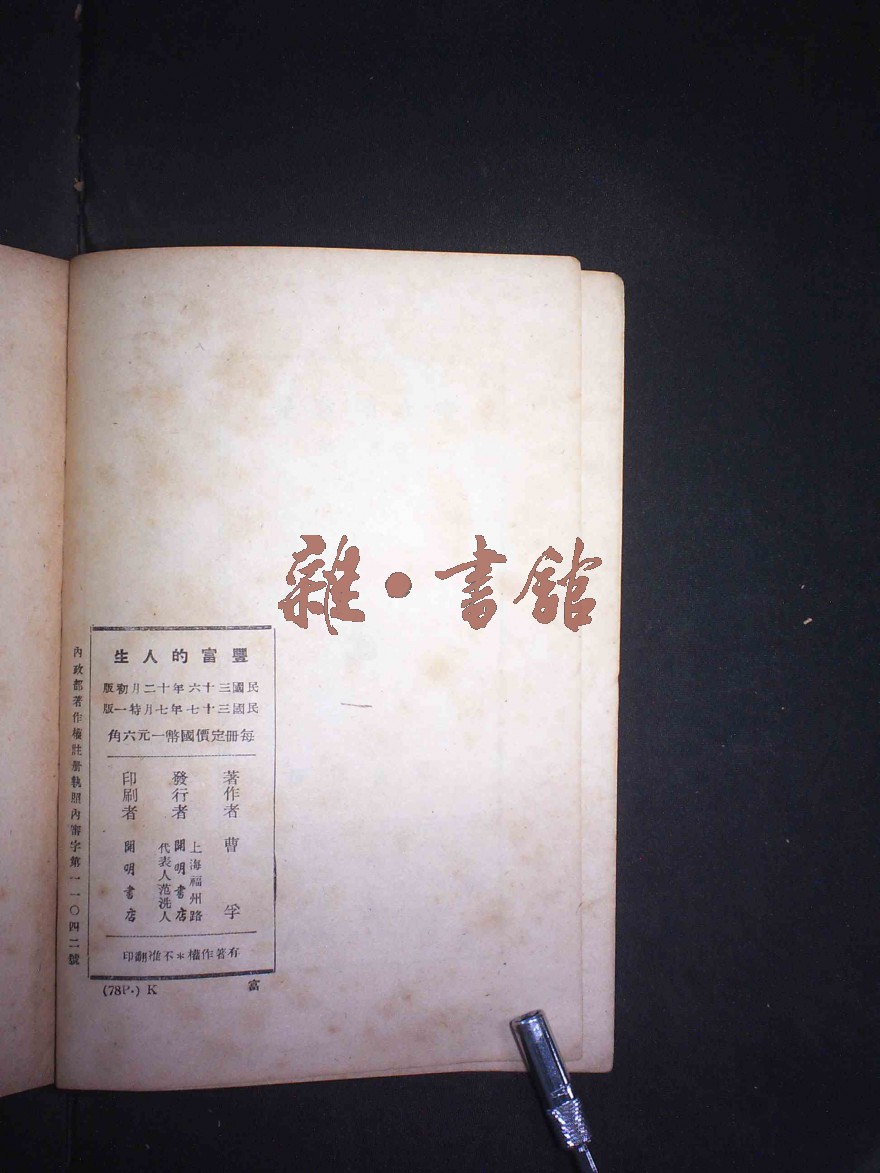 雜·書館
豐富的人生
民國三十六年十二月初版
民國三十七年七月特一版
每冊定價國幣一元六角
著作者 曹孚
發行者 上海福州路
開明書店
代表人范洗人
印刷者 開明書店
有著作權*不准翻印
內政部著作權註册執照內審字第一一〇四二號
富
(78P.) K